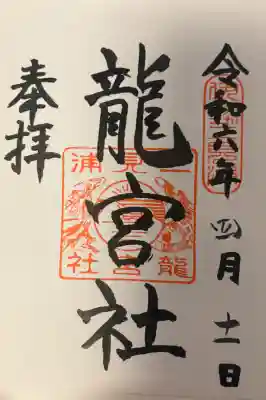 令和六年四月十一日
龍宮社
二見浦
龍宮社
奉拝